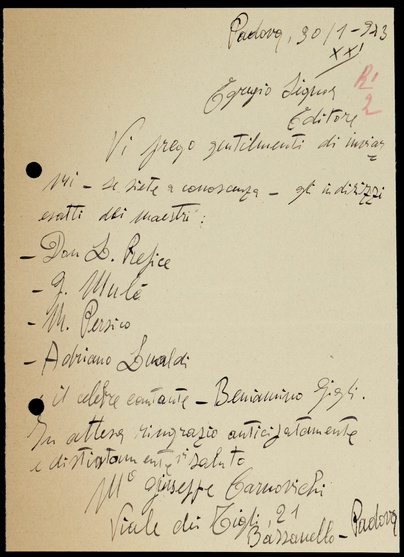 Padova, 30/1-943
XXI
R!
2
Egregio Signor
Editore
Vi prego gentilmenti di inviar
mi - se siete a conoscenza - gli indirizzi
esatti dei maestri:
- Don L. Refice
- G. Mulè
- M. Persico
- Adriano Lualdi
e il celebre cantante - Beniamino Gigli.
In attesa ringrazio anticipatamente
e distintamente Vi saluto
M° Giuseppe
Viale dei Tigli, 21
Bassanello - Padova